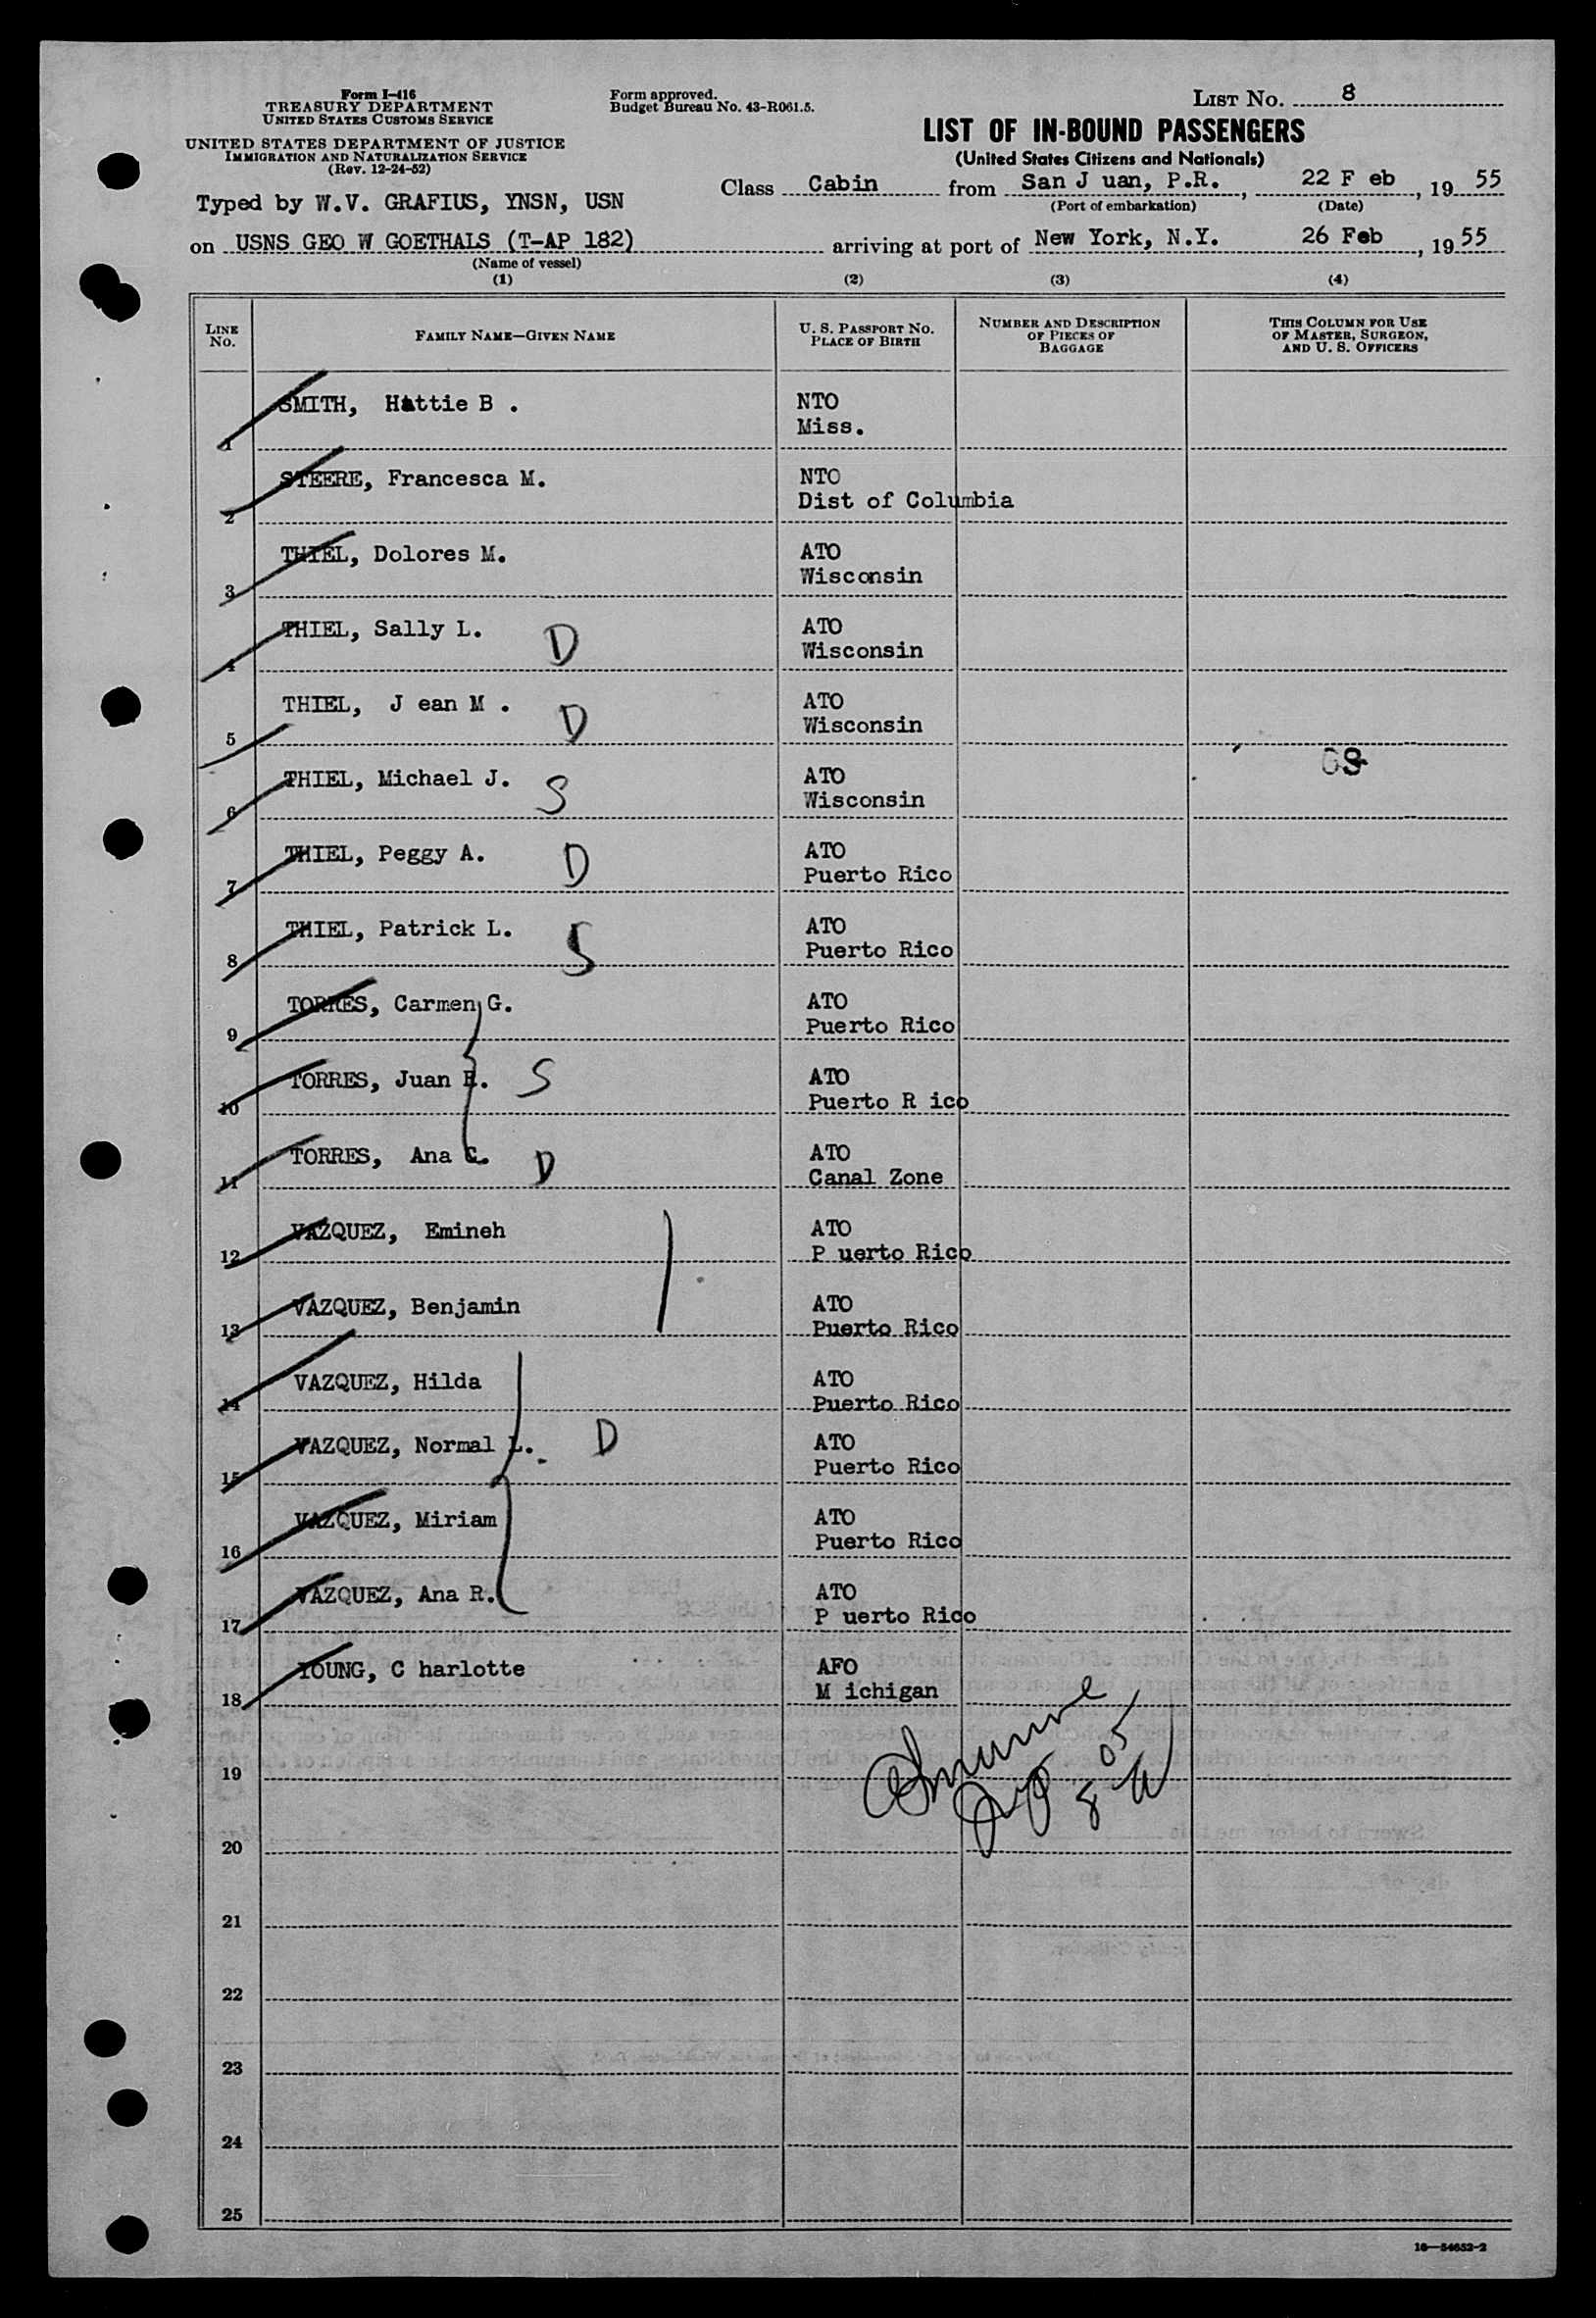 Form I-416
TREASURY DEPARTMENT
UNITED STATES CUSTOMS SERVICE
UNITED STATES DEPARTMENT OF JUSTICE
IMMIGRATION AND NATURALIZATION SERVICE
(Rev. 12-24-52)
Form approved.
Budget Bureau No. 43-R061.5.
LIST NO. 8
LIST OF IN-BOUND PASSENGERS
(United States Citizens and Nationals)
Typed by W.V. GRAFIUS, YNSN, USN
Class Cabin from San J uan, P.R., 22 F eb, 19 55
(Port of embarkation) (Date)
on USNS GEO W GOETHALS (T-AP 182) arriving at port of New York, N.Y. 26 Feb, 19 55
(Name of vessel)
(1) (2) (3) (4)
LINE NO.
FAMILY NAME—GIVEN NAME
U. S. PASSPORT NO.
PLACE OF BIRTH
NUMBER AND DESCRIPTION
OF PIECES OF
BAGGAGE
THIS COLUMN FOR USE
OF MASTER, SURGEON,
AND U. S. OFFICERS
SMITH, Hattie B . NTO
1 Miss.
STEERE, Francesca M. NTO
2 Dist of Columbia
THIEL, Dolores M. ATO
3 Wisconsin
THIEL, Sally L. D ATO
4 Wisconsin
THIEL, J ean M . D ATO
5 Wisconsin
THIEL, Michael J. S ATO
6 Wisconsin
THIEL, Peggy A. D ATO
7 Puerto Rico
THIEL, Patrick L. S ATO
8 Puerto Rico
TORRES, Carmen G. ATO
9 Puerto Rico
TORRES, Juan E. S ATO
10 Puerto R ico
TORRES, Ana C. D ATO
11 Canal Zone
VAZQUEZ, Emineh ATO
12 P uerto Rico
VAZQUEZ, Benjamin ATO
13 Puerto Rico
VAZQUEZ, Hilda ATO
14 Puerto Rico
VAZQUEZ, Normal L. D ATO
15 Puerto Rico
VAZQUEZ, Miriam ATO
16 Puerto Rico
VAZQUEZ, Ana R. ATO
17 P uerto Rico
YOUNG, C harlotte AFO
18 M ichigan
19
20
21
22
23
24
25
16—54652-2